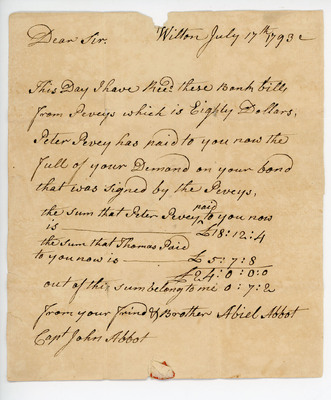 Dear Sir. Wilton July 17th 1793
This Day I have Recd these Bank bills
from Peveys which is Eighty Dollars,
Peter Pevey has paid to you now the
full of your Demand on your bond
that was signed by the Peveys,
the sum that Peter Pevey paid to you now
is £18:12:4
the sum that Thomas Paid
to you now is £5:7:8
£24:0:0:0
out of this sum belong to me 0:7:2
from your Frind & Brother Abiel Abbot
Capt John Abbot